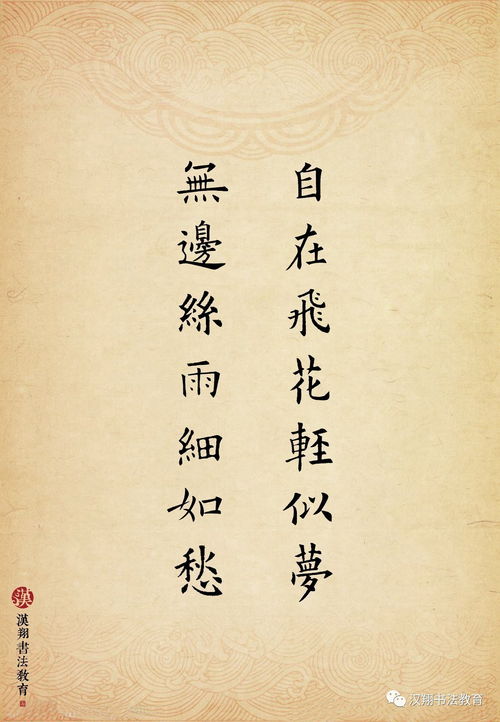 自在飛花輕似夢
無邊絲雨細如愁
漢
漢翔書法教育
汉翔书法教育